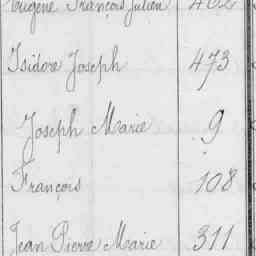 Eugène François Julien 402
Isidore Joseph 473
Joseph Marie 9
François 108
Jean Pierre Marie 311